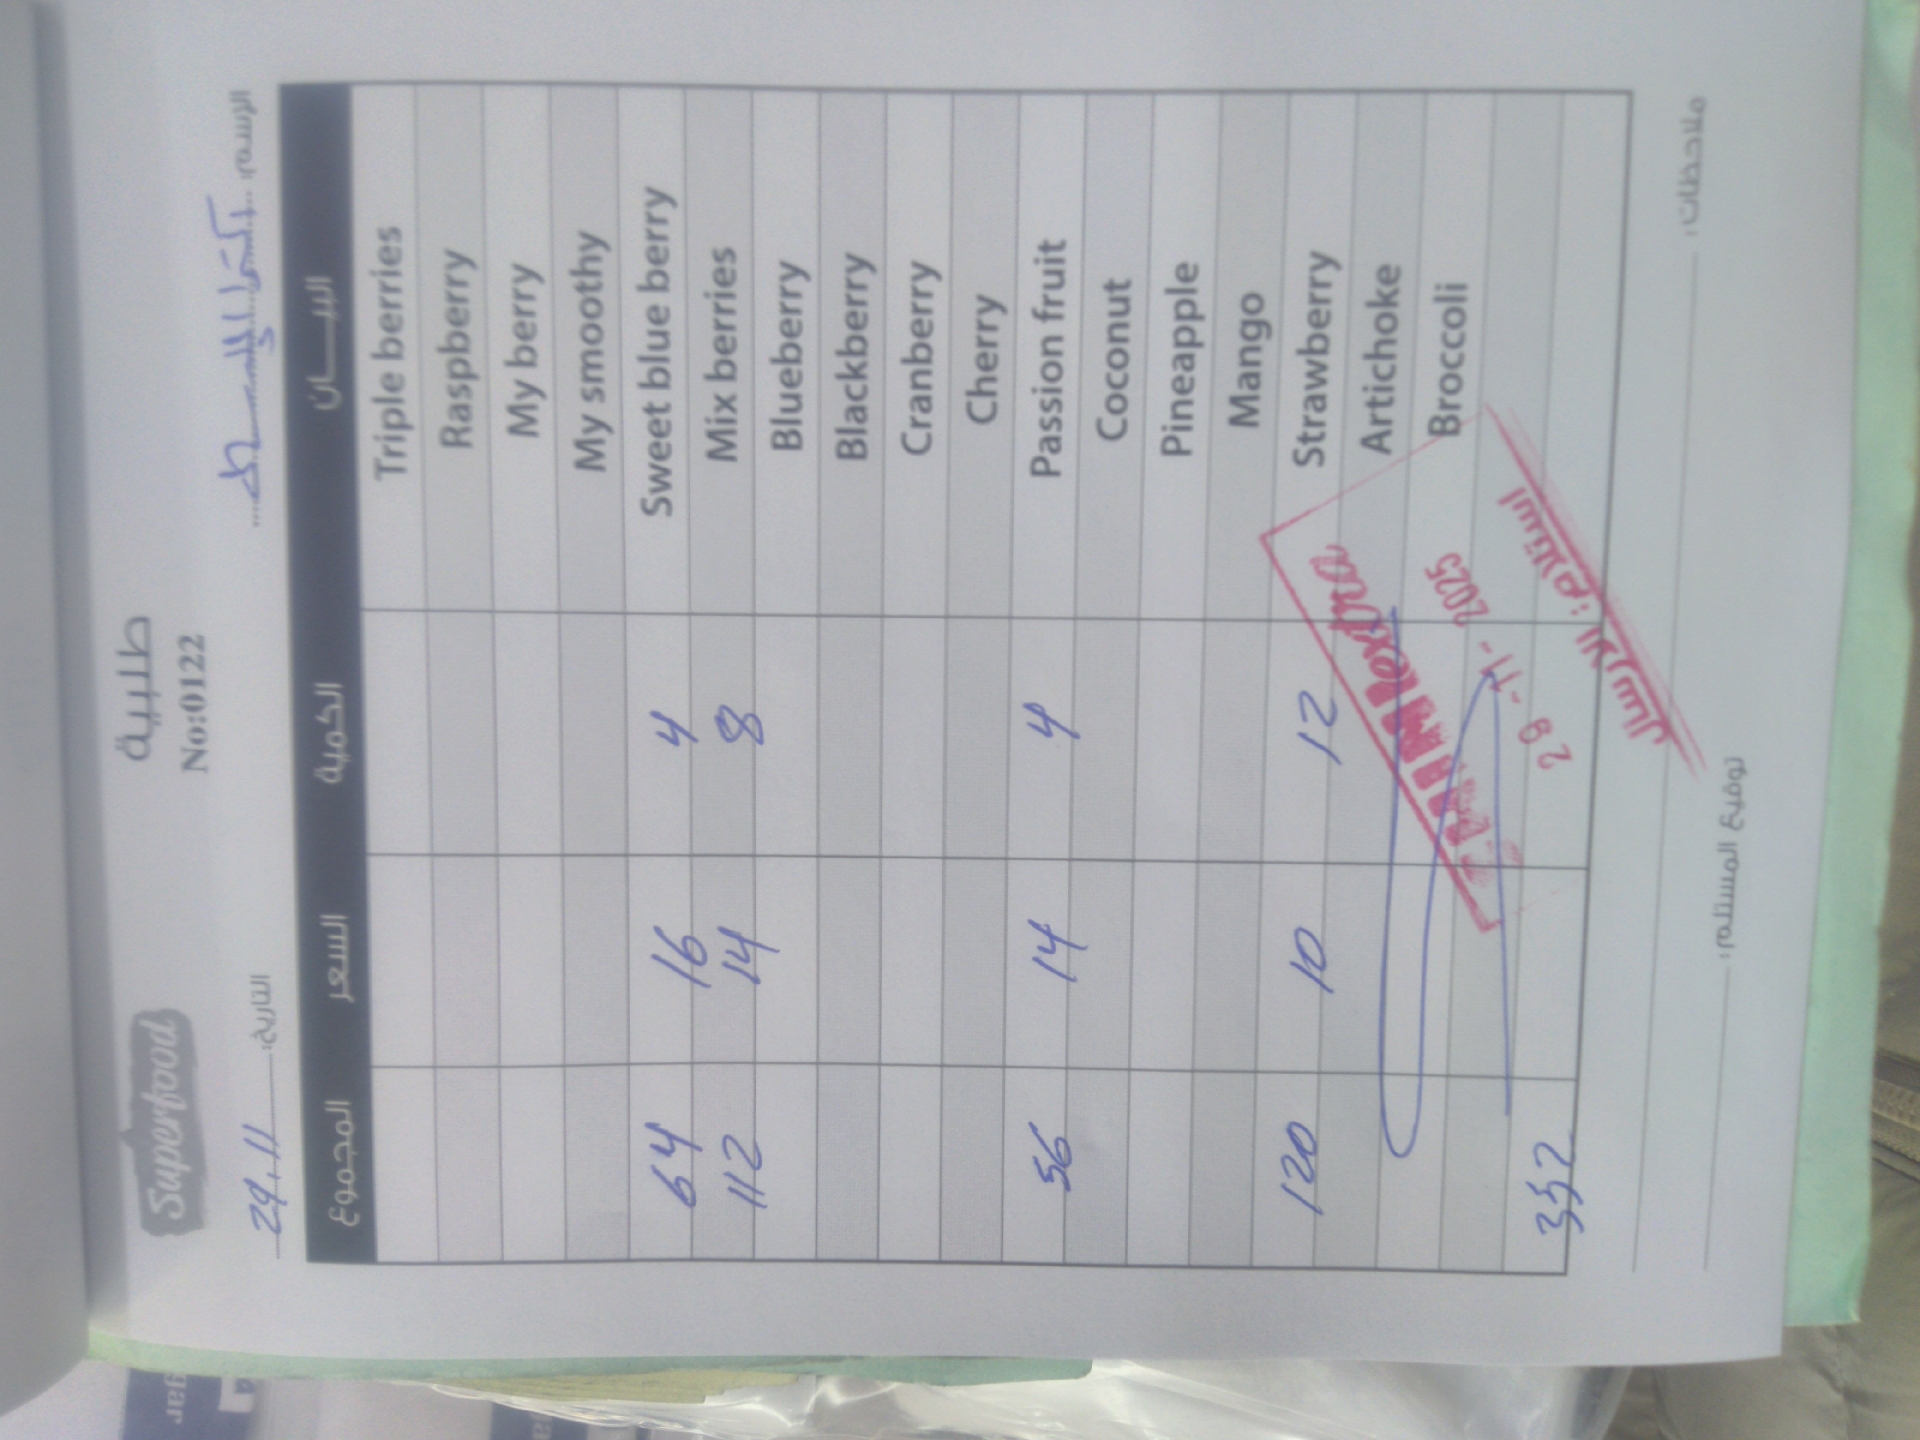 Superfood
طلبية
No:0122
التاريخ: 29.11
الإسم: اكسترا
البيـــان الكمية السعر المجموع
Triple berries
Raspberry
My berry
My smoothy
Sweet blue berry 4 16 64
Mix berries 8 14 112
Blueberry
Blackberry
Cranberry
Cherry
Passion fruit 4 14 56
Coconut
Pineapple
Mango
Strawberry 12 10 120
Artichoke
Broccoli
352
extra
29 - 11 - 2025
الاستلام:
الارسال
ملاحظات:
توقيع المستلم:
gar